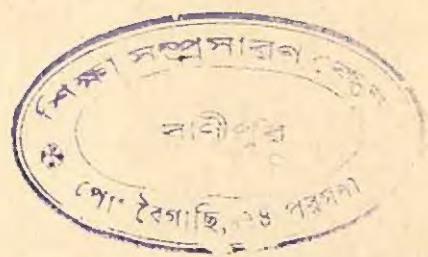 শিক্ষা সম্প্রসারণ কেন্দ্র
বাণীপুর
পোঃ বৈগাছি, ২৪ পরগনা